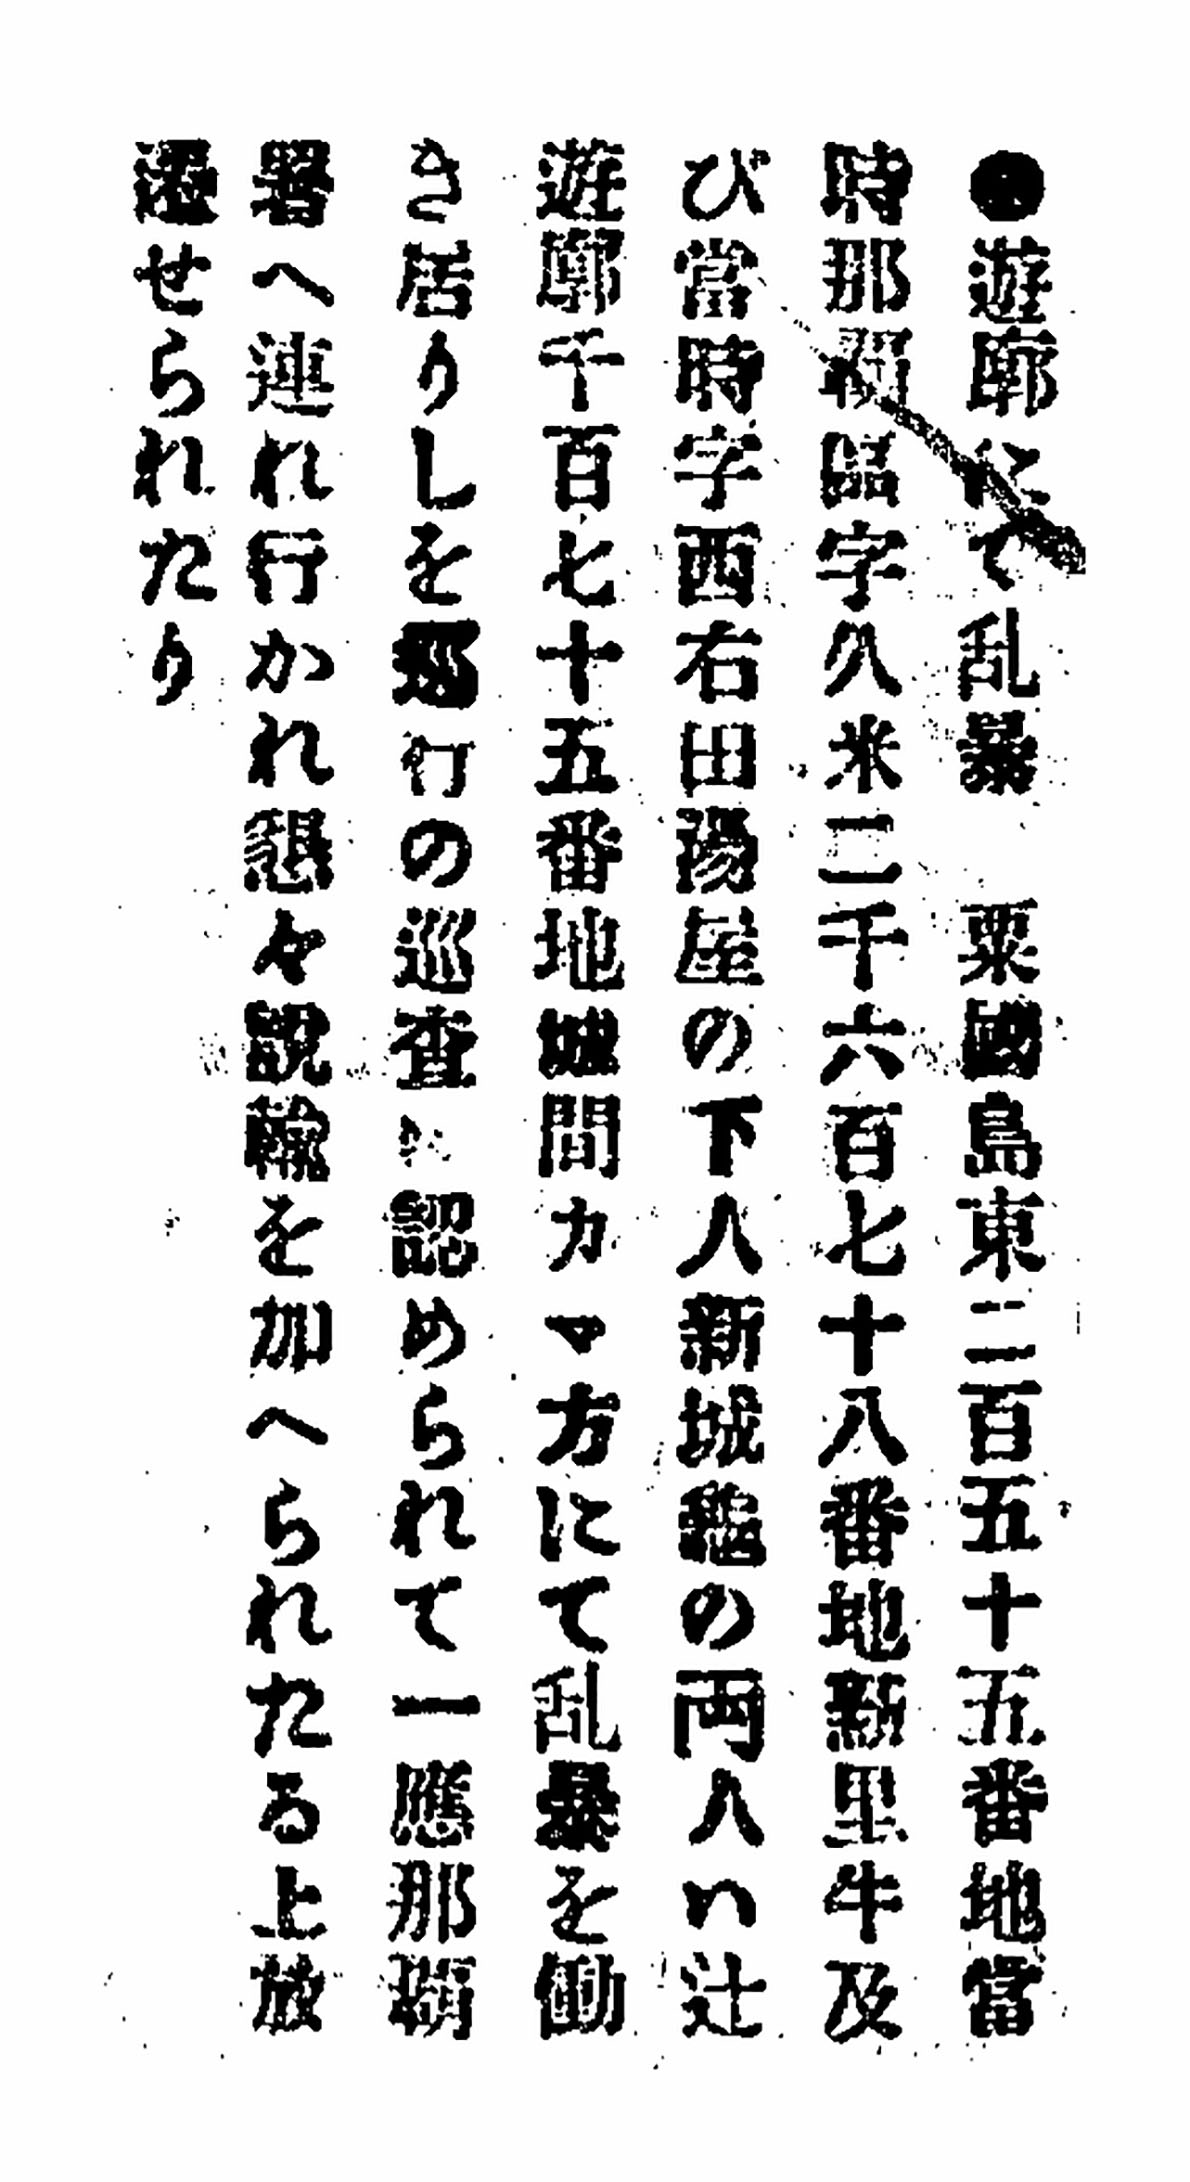 ●遊廓にて乱暴　粟國島東二百五十五番地當
時那覇區字久米二千六百七十八番地新里牛及
び當時字西右田湯屋の下人新城龜の両人ハ辻
遊廓千百七十五番地城間カマ方にて乱暴を働
き居りしを巡行の巡査に認められて一應那覇
署へ連れ行かれ懇々説諭を加へられたる上放
還せられたり